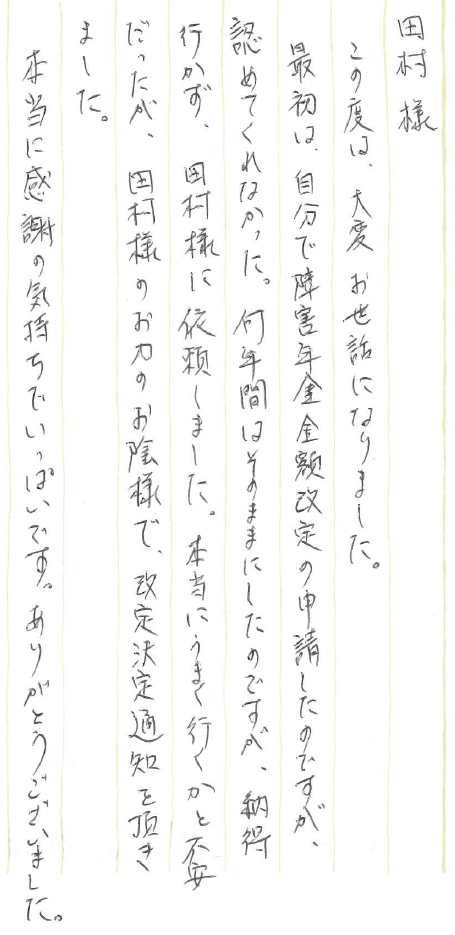 田村 様
この度は、大変お世話になりました。
最初は、自分で障害年金金額改定の申請したのですが、
認めてくれなかった。何年間はそのままにしたのですが、納得
行かず、田村様に依頼しました。本当にうまく行くかと不安
だったが、田村様のお力のお陰様で、改定決定通知を頂き
ました。
本当に感謝の気持ちでいっぱいです。ありがとうございました。